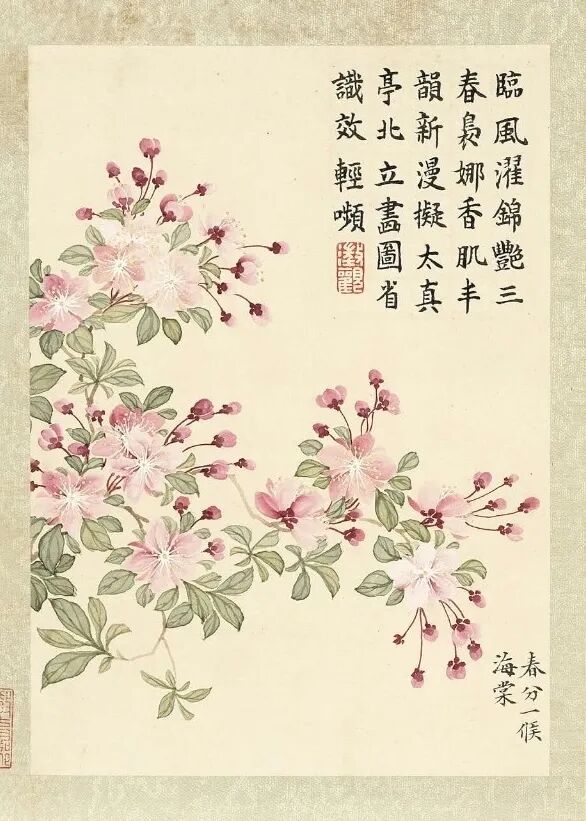 臨風濯錦艷三
春裊娜香肌丰
韻新漫擬太真
亭北立畵圖省
識效輕嚬
澂觀
春分一候
海棠